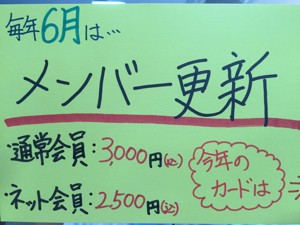 毎年6月は…
メンバー更新
通常会員:3,000円(税込)
ネット会員:2,500円(税込)
今年の
カードは